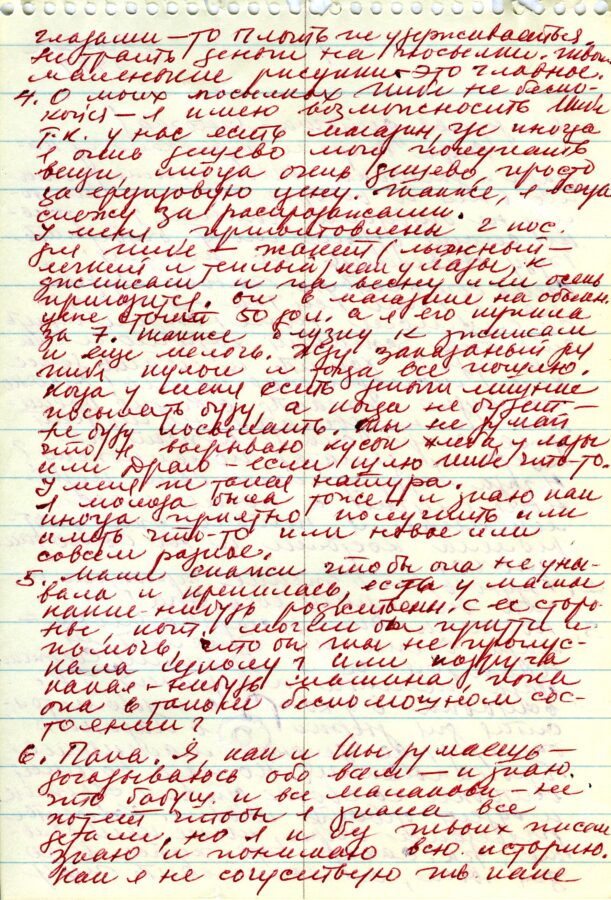 глазами – то плоть не удерживаеться
не трать деньги на посылки. Твои
маленькие рисунки – это главное.
4. О моих посилках тибе не беспо-
койся – я имею возможсность тибе
т.к. у нас есть магазин, где иногда
я очень дешево могу покупать
вещи, иногда очень дешево, просто
за ерундовую цену. также, я всегда
слежу за распродажами.
У меня приготовлены 2 пос.
для тибе – жакет (лыжный –
легкий и теплый) как у лады, к
джинсам и на весну или осень
пригодится. он в магазине на обыкн.
цене стоит 50 дол. а я его купила
за 7. также блузку к джинсам
и еще мелочь. Жду заказаный
тибе кулон и тогда все пошлю.
когда у меня есть деньги лишние
посылать буду, а когда не будет –
не буду посылать. ты не думай
что я вырываю кусок хлеба у лады
или – если шлю тибе что-то.
У меня не такая натура.
я молода была тоже и знаю как
иногда приятно получить или
иметь что-то или новое или
совсем разное.
5. Маме скажи чтобы она не уны-
вала и крепилась, есть у мамы
какие-нибудь родственн. с ее сторо-
ны, кот. могли бы прийти и
помочь, что бы ты не пропус-
кала школу? или подруга
какая-нибудь мамина пока
она в таком беспомощном сос-
тоянии?
6. Папа. Я, как и ты думаешь –
догадываюсь обо всем – и знаю.
что бабуш. и все – не
хотели чтобы я знала все
детали, но я и без твоих писем
знаю и понимаю всю историю.
как я не сочуствую